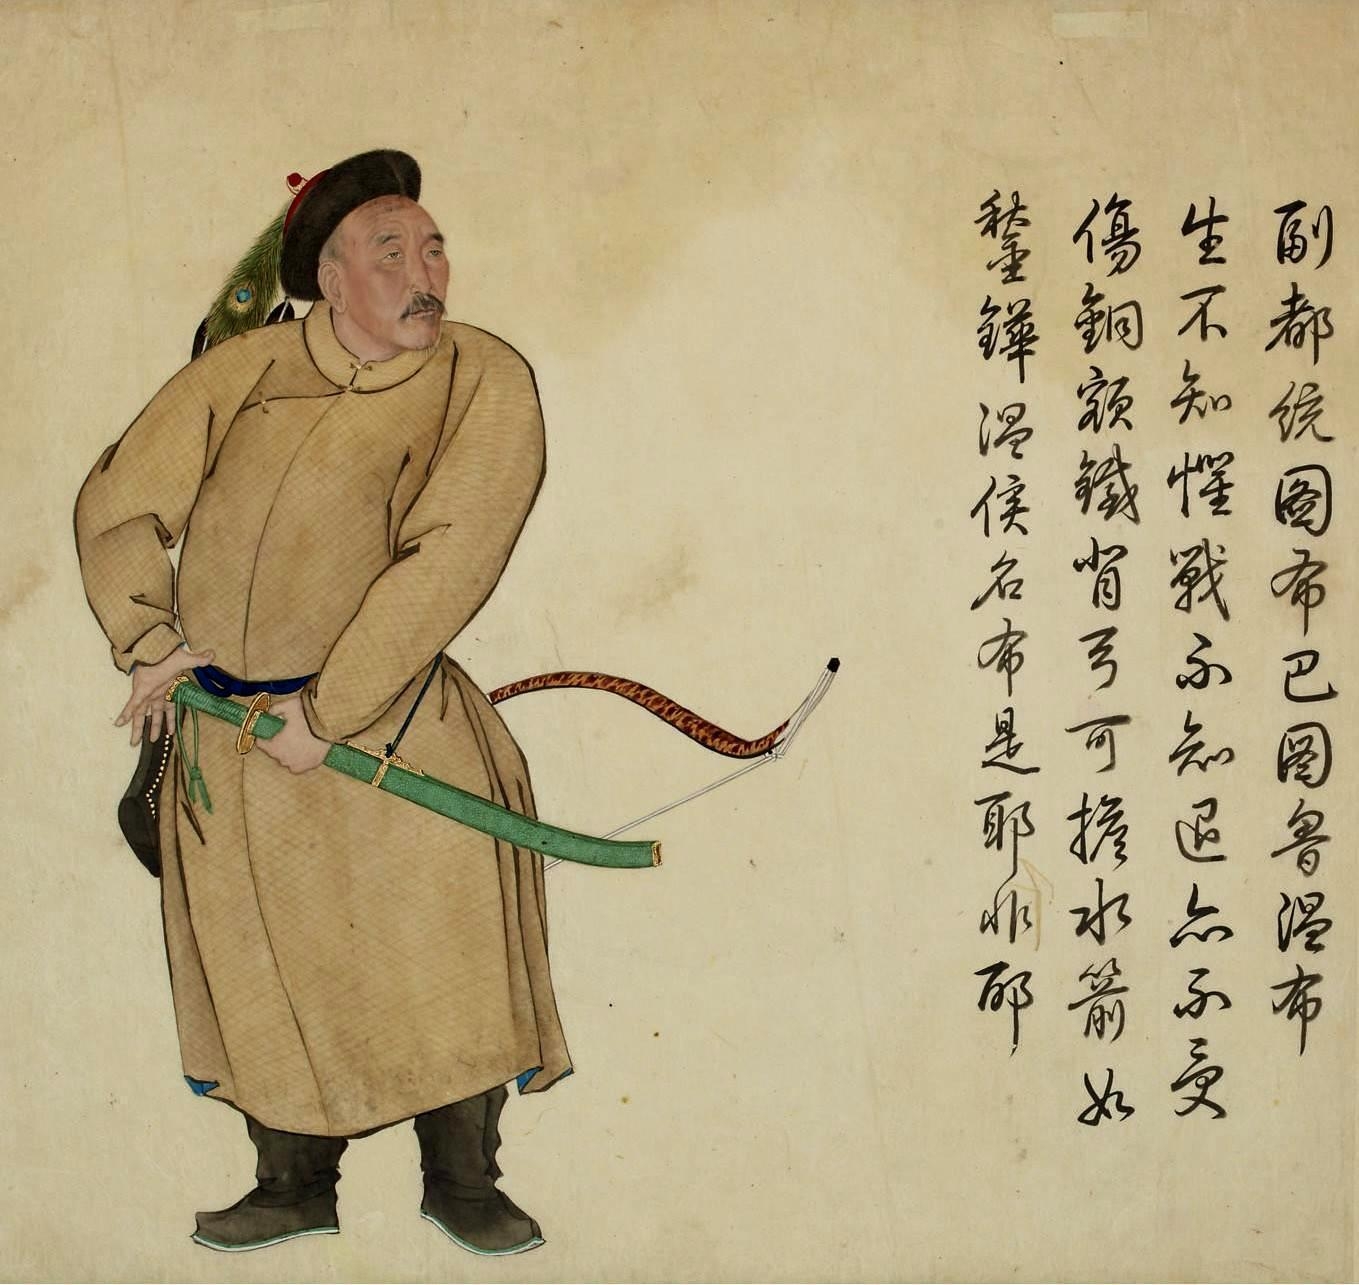 副都統圖布巴圖魯溫布
生不知懼戰不知退亦不受
傷銅額鐵背弓可擔水箭如
鍫鏵溫侯名布是耶非耶